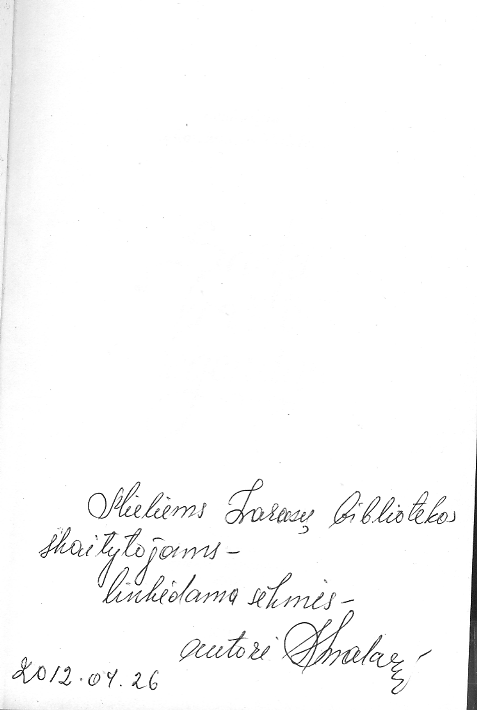 Mieliems Zarasų bibliotekos
skaitytojams –
linkėdama sėkmės –
autorė
2012.04.26